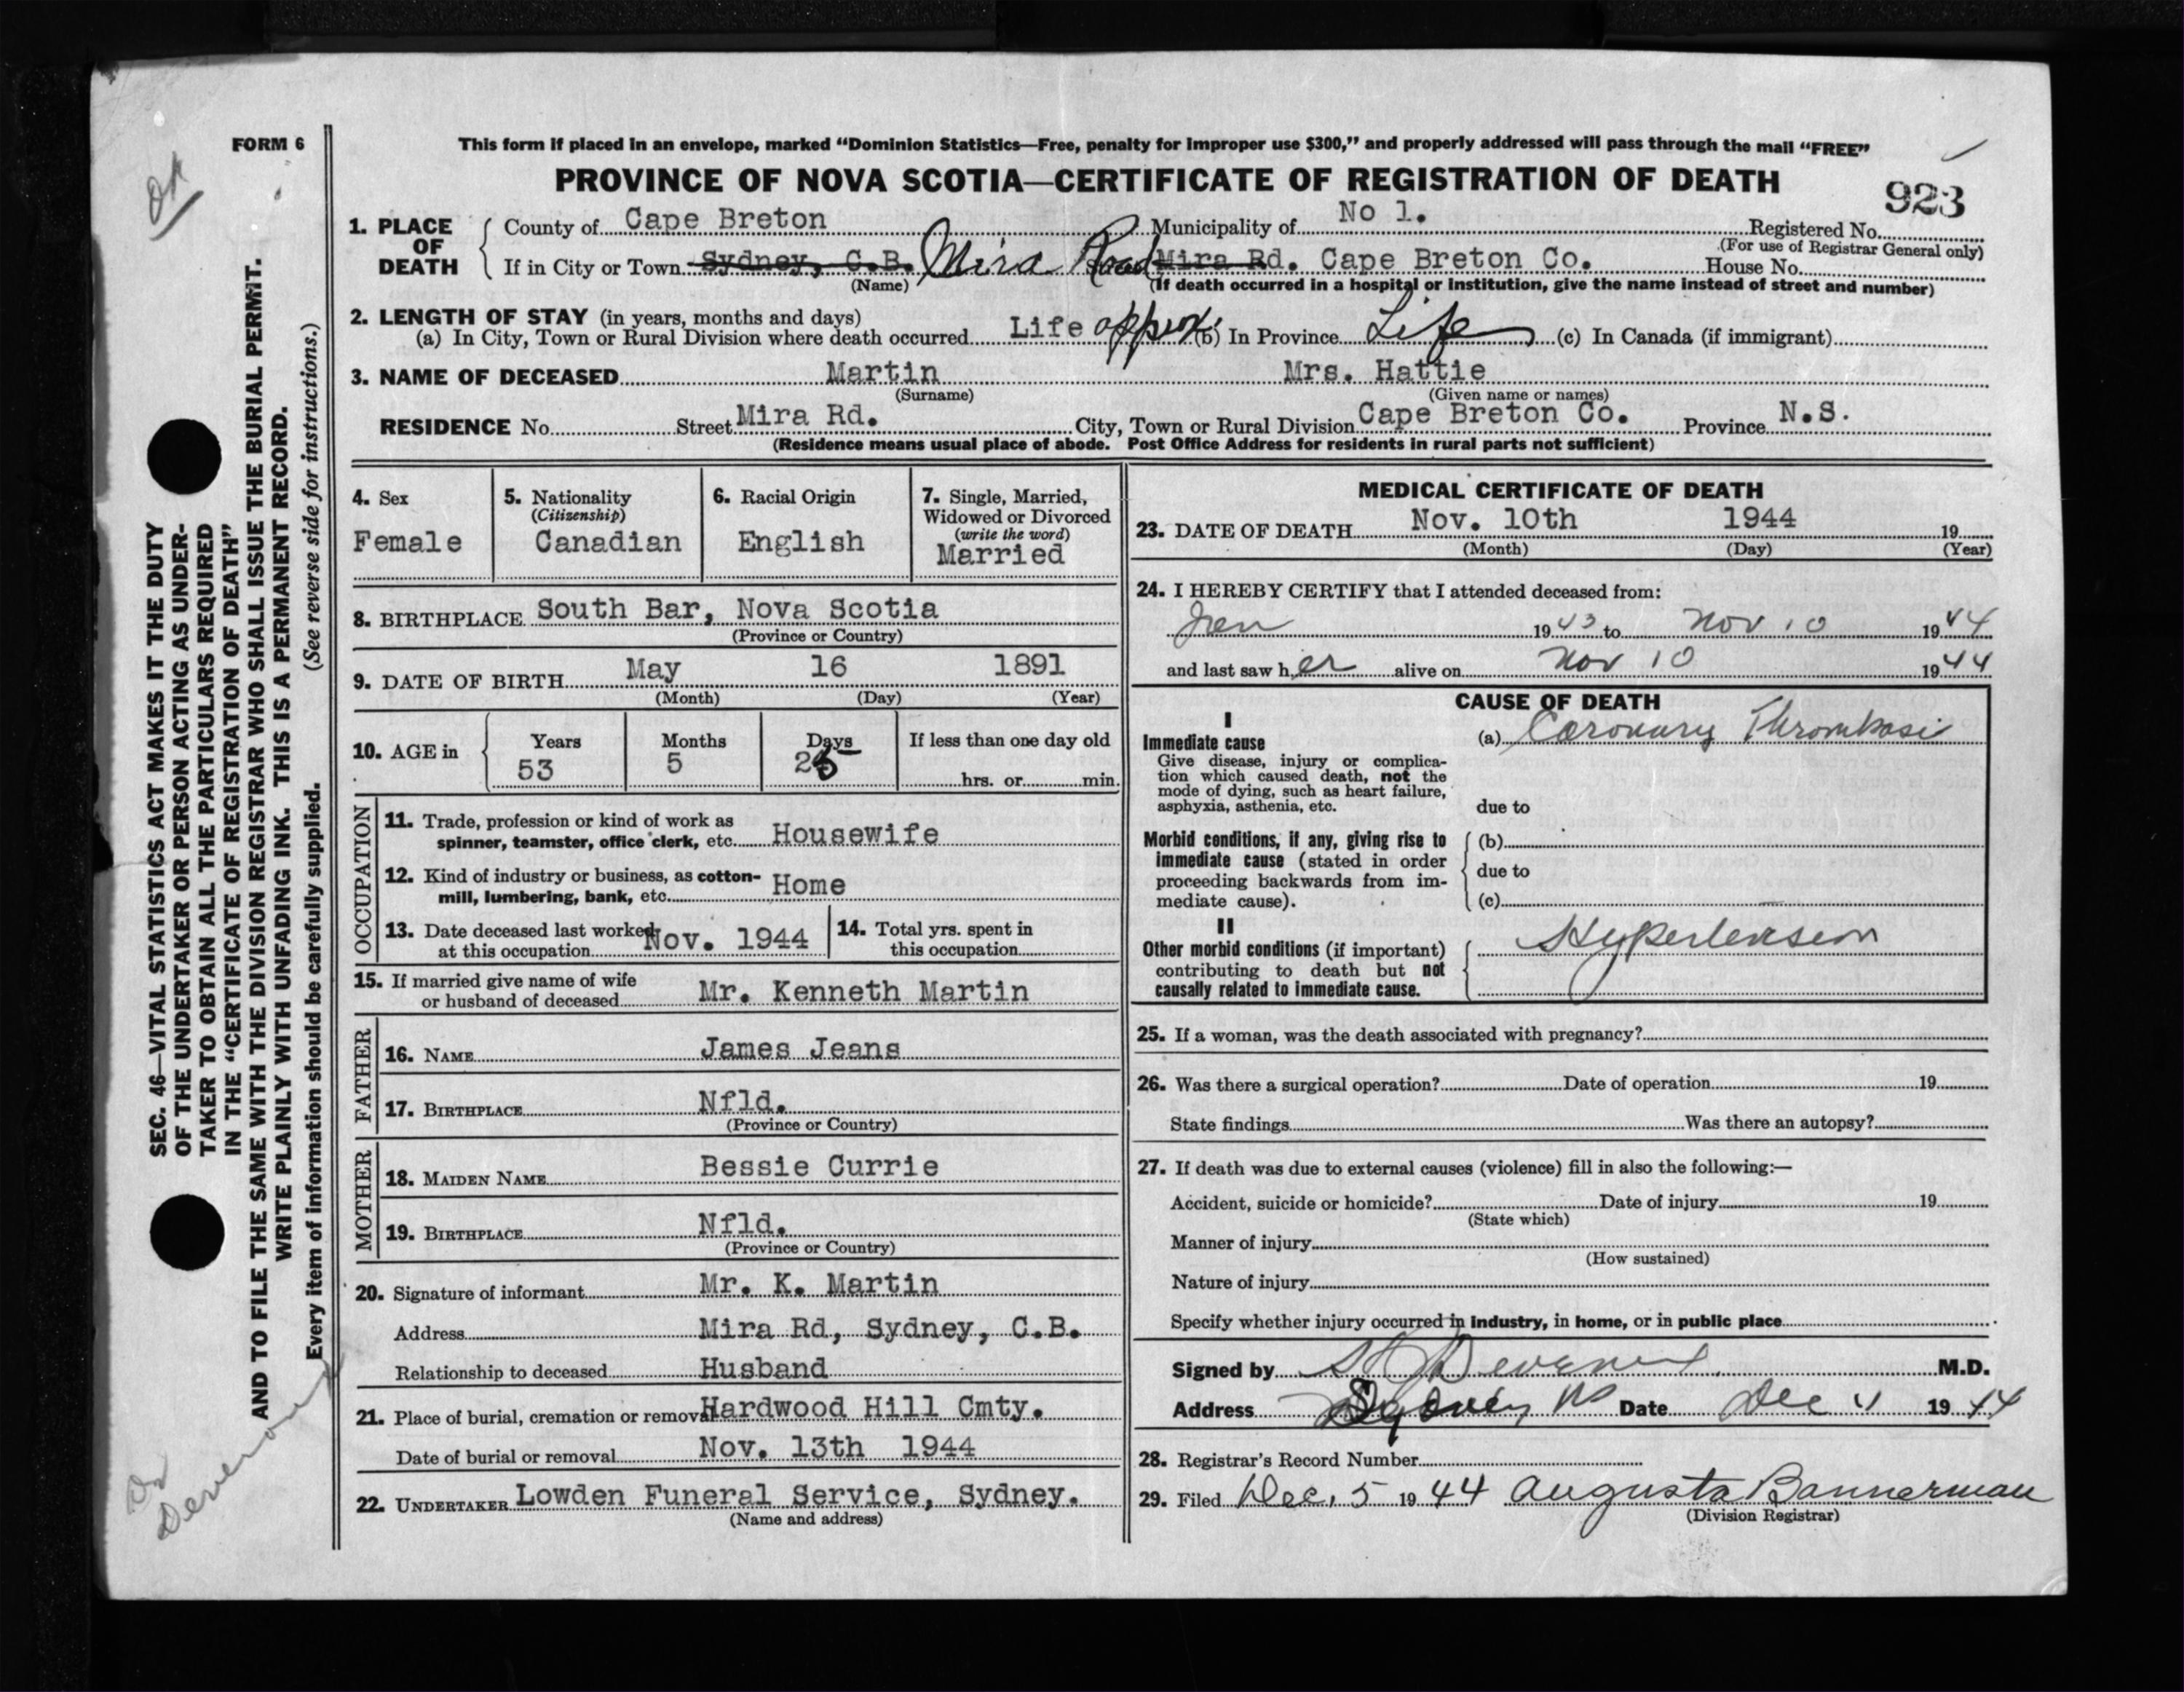 FORM 6
OK
This form if placed in an envelope, marked “Dominion Statistics—Free, penalty for improper use $300,” and properly addressed will pass through the mail “FREE”
PROVINCE OF NOVA SCOTIA—CERTIFICATE OF REGISTRATION OF DEATH
923
1. PLACE OF DEATH
County of Cape Breton Municipality of No 1. Registered No.
(For use of Registrar General only)
If in City or Town Sydney, C.B. Mira Road Mira Rd. Cape Breton Co. House No.
(Name) (If death occurred in a hospital or institution, give the name instead of street and number)
2. LENGTH OF STAY (in years, months and days)
(a) In City, Town or Rural Division where death occurred Life approx. (b) In Province Life (c) In Canada (if immigrant)
3. NAME OF DECEASED Martin Mrs. Hattie
(Surname) (Given name or names)
RESIDENCE No. Street Mira Rd. City, Town or Rural Division Cape Breton Co. Province N.S.
(Residence means usual place of abode. Post Office Address for residents in rural parts not sufficient)
4. Sex
Female
5. Nationality
(Citizenship)
Canadian
6. Racial Origin
English
7. Single, Married,
Widowed or Divorced
(write the word)
Married
8. BIRTHPLACE South Bar, Nova Scotia
(Province or Country)
9. DATE OF BIRTH May 16 1891
(Month) (Day) (Year)
10. AGE in
Years Months Days If less than one day old
53 5 25 hrs. or min.
OCCUPATION
11. Trade, profession or kind of work as
spinner, teamster, office clerk, etc. Housewife
12. Kind of industry or business, as cotton-
mill, lumbering, bank, etc. Home
13. Date deceased last worked
at this occupation Nov. 1944
14. Total yrs. spent in
this occupation
15. If married give name of wife
or husband of deceased Mr. Kenneth Martin
FATHER
16. NAME James Jeans
17. BIRTHPLACE Nfld.
(Province or Country)
MOTHER
18. MAIDEN NAME Bessie Currie
19. BIRTHPLACE Nfld.
(Province or Country)
20. Signature of informant Mr. K. Martin
Address Mira Rd, Sydney, C.B.
Relationship to deceased Husband
21. Place of burial, cremation or removal Hardwood Hill Cmty.
Date of burial or removal Nov. 13th 1944
22. UNDERTAKER Lowden Funeral Service, Sydney.
(Name and address)
MEDICAL CERTIFICATE OF DEATH
23. DATE OF DEATH Nov. 10th 1944 19
(Month) (Day) (Year)
24. I HEREBY CERTIFY that I attended deceased from:
Jan 1943 to Nov 10 1944
and last saw her alive on Nov 10 1944
CAUSE OF DEATH
I
Immediate cause
Give disease, injury or complica-
tion which caused death, not the
mode of dying, such as heart failure,
asphyxia, asthenia, etc.
(a) Coronary Thrombosi
due to
Morbid conditions, if any, giving rise to
immediate cause (stated in order
proceeding backwards from im-
mediate cause).
(b)
due to
(c)
II
Other morbid conditions (if important)
contributing to death but not
causally related to immediate cause.
Hypertension
25. If a woman, was the death associated with pregnancy?
26. Was there a surgical operation? Date of operation 19
State findings Was there an autopsy?
27. If death was due to external causes (violence) fill in also the following:—
Accident, suicide or homicide? Date of injury 19
(State which)
Manner of injury
(How sustained)
Nature of injury
Specify whether injury occurred in industry, in home, or in public place
Signed by M.D.
Address Sydney NS Date Dec 1944
28. Registrar's Record Number
29. Filed Dec. 5 1944 Augusta Bannerman
(Division Registrar)
SEC. 46—VITAL STATISTICS ACT MAKES IT THE DUTY
OF THE UNDERTAKER OR PERSON ACTING AS UNDER-
TAKER TO OBTAIN ALL THE PARTICULARS REQUIRED
IN THE “CERTIFICATE OF REGISTRATION OF DEATH”
AND TO FILE THE SAME WITH THE DIVISION REGISTRAR WHO SHALL ISSUE THE BURIAL PERMIT.
WRITE PLAINLY WITH UNFADING INK. THIS IS A PERMANENT RECORD.
Every item of information should be carefully supplied. (See reverse side for instructions.)